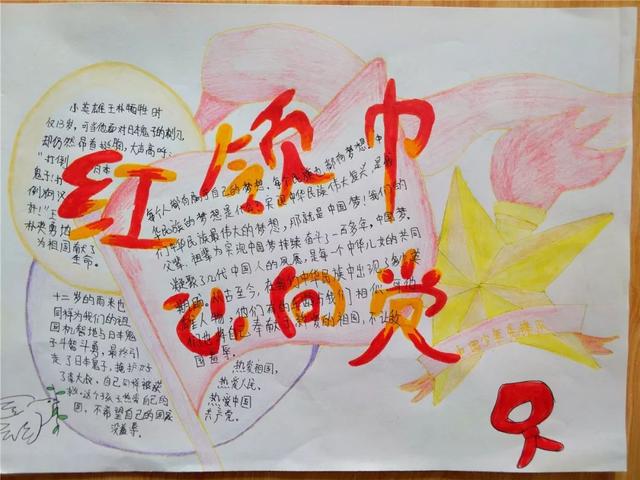 红领巾
心向党
小英雄王朴牺牲时
仅13岁,可当他面对日本鬼子的刺刀
却仍然昂首挺胸,大声高呼:
"打倒日本
鬼子!打
倒狗汉
奸!"王
朴英勇地
为祖国献了
生命。
十二岁的雨来也
同样为我们的祖
国机智地与日本鬼
子斗智斗勇,最终引
走了日本鬼子,掩护好
了李大叔,自己
这个孩子热爱自己的
国,不希望自己的国家
没尊严。
每个人都有属于自己的梦想。每个民族也都有梦想。中
华民族的梦想是什么?实现中华民族伟大复兴,是我
们中华民族最伟大的梦想,那就是中国梦!我们的
父辈、祖辈为实现中国梦拼搏奋斗了一百多年,中国梦。
凝聚了几代中国人的夙愿,是每一个中华儿女的共同
期盼。从古至今,在我们中华民族中出现了多少英
雄人物,他们有的年龄与我们相仿,
他们也将自己奉献给了亲爱的祖国,不让敌
国羞辱。
热爱祖国,
热爱人民,
热爱中国
共产党。
中国少年先锋队